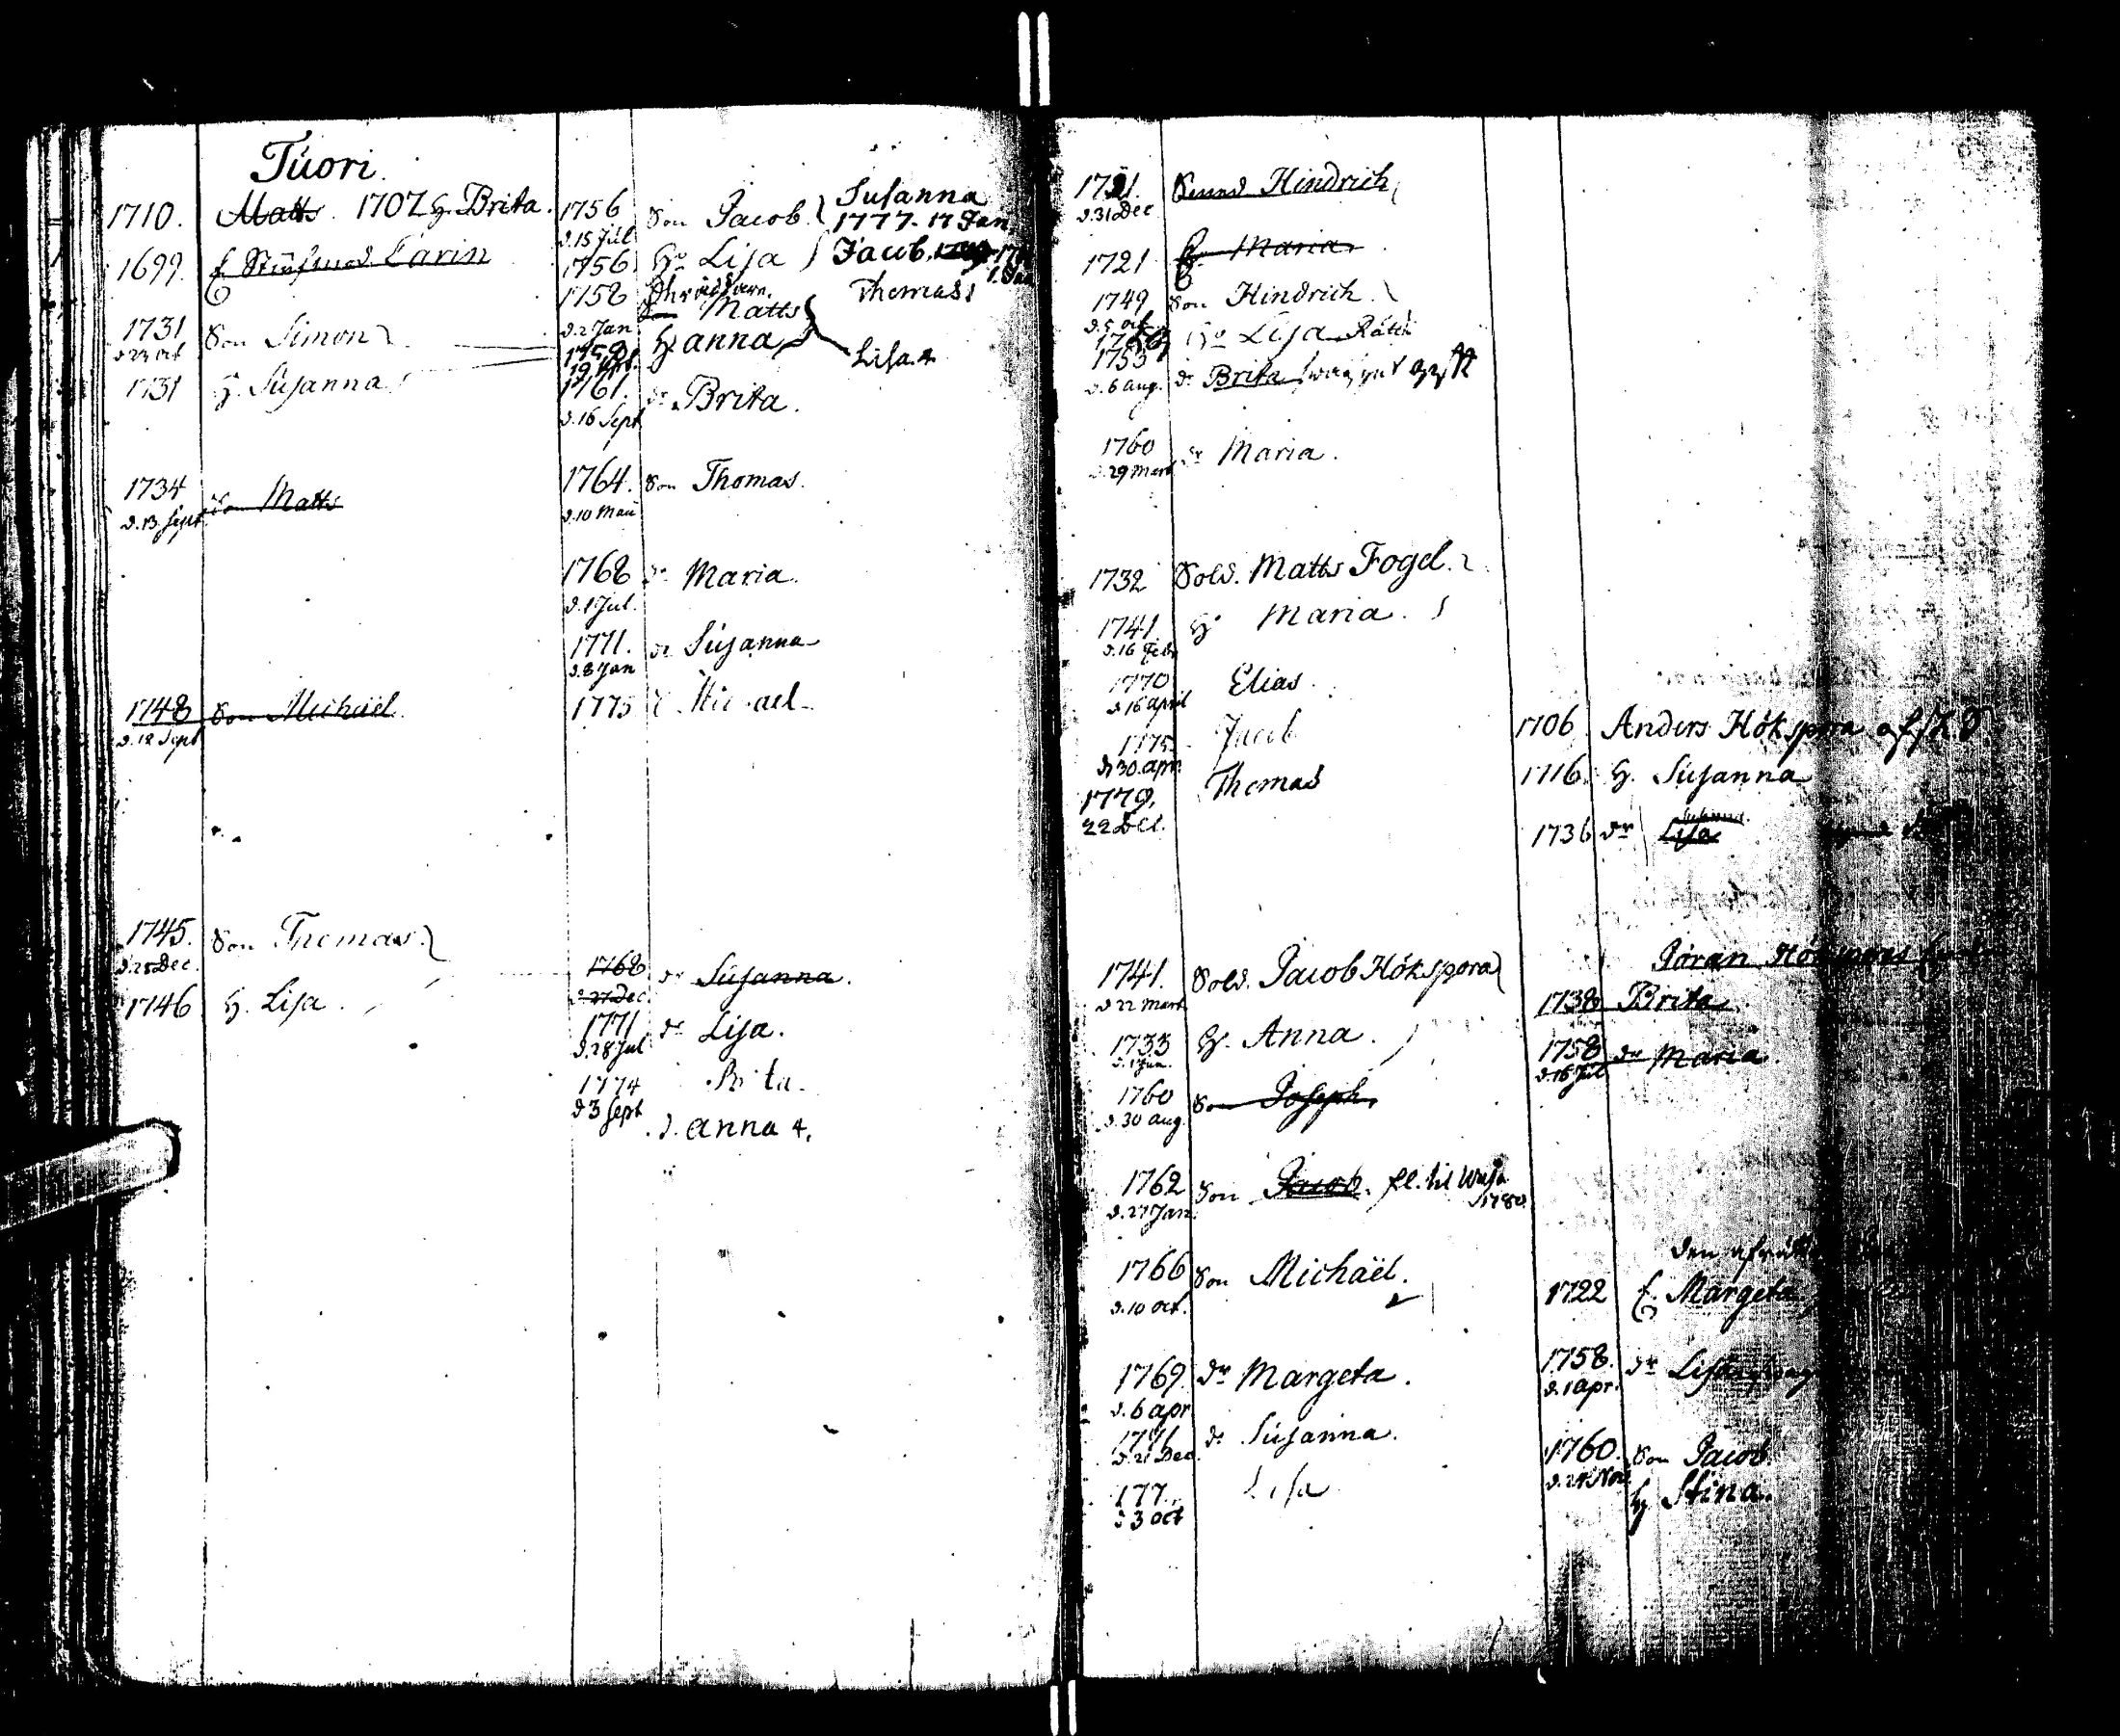 Tuori.
1710. Matts. 1707 H. Brita.
1699. Carin
1731 Son Simon
d. 23 Oct
1731 H. Susanna
1734 Son Matts
d. 13 Sept
1748 Son Michaël.
d. 12 Sept
1745. Son Thomas.
d. 25 Dec.
1746 H. Lisa.
1756 Son Jacob.
d. 15 Jul
1756 Hu Lisa
1758 Matts
d. 2 Jan
1758 H anna
1761. dr Brita.
d. 16 Sept
1764. Son Thomas.
d. 10 Maii
1768 dr Maria.
d. 1 Jul.
1771. dr Susanna
d. 8 Jan
1775
1768 dr Susanna.
d. 27 Dec.
1771 dr Lisa.
d. 28 Jul
1774
d 3 Sept
d. anna 4.
Susanna
1777. 17 Jan
Jacob.
Thomas
Lisa. 4
d. 31 Dec Hindrich
1721 Maria
1749 Son Hindrich.
d. 5 Oct
Hu Lisa
1753 dr Brita
d. 6 aug.
1760 dr Maria.
d. 29 Mart
1732 Sold. Matts Fogel.
1741 Hu Maria.
d. 16 Febr
1770 Elias.
d 16 april
1775 Jacob
d 30. apr.
1779. Thomas
22 Dec.
1741. Sold. Jacob Hökspora
d 22 Mart
1733 H. Anna.
d. 1 Jun.
1760 Son Joseph.
d. 30 aug.
1762 Son Jacob. fl. til Wasa
d. 27 Jan. 1780.
1766 Son Michaël.
d. 10 Oct.
1769. dr Margeta.
d. 6 apr
dr Susanna.
d. 21 Dec.
Lisa
d 3 Oct
1706 Anders Hökspora
1716. H. Susanna
1736 dr Lisa
Susanna.
Jöran
1738 Brita
1758 dr Maria
d. 16 Jul
den
1722 Margeta
1758. dr
d. 1 apr.
1760. Son Jacob.
d. 24 Nov
H Stina.